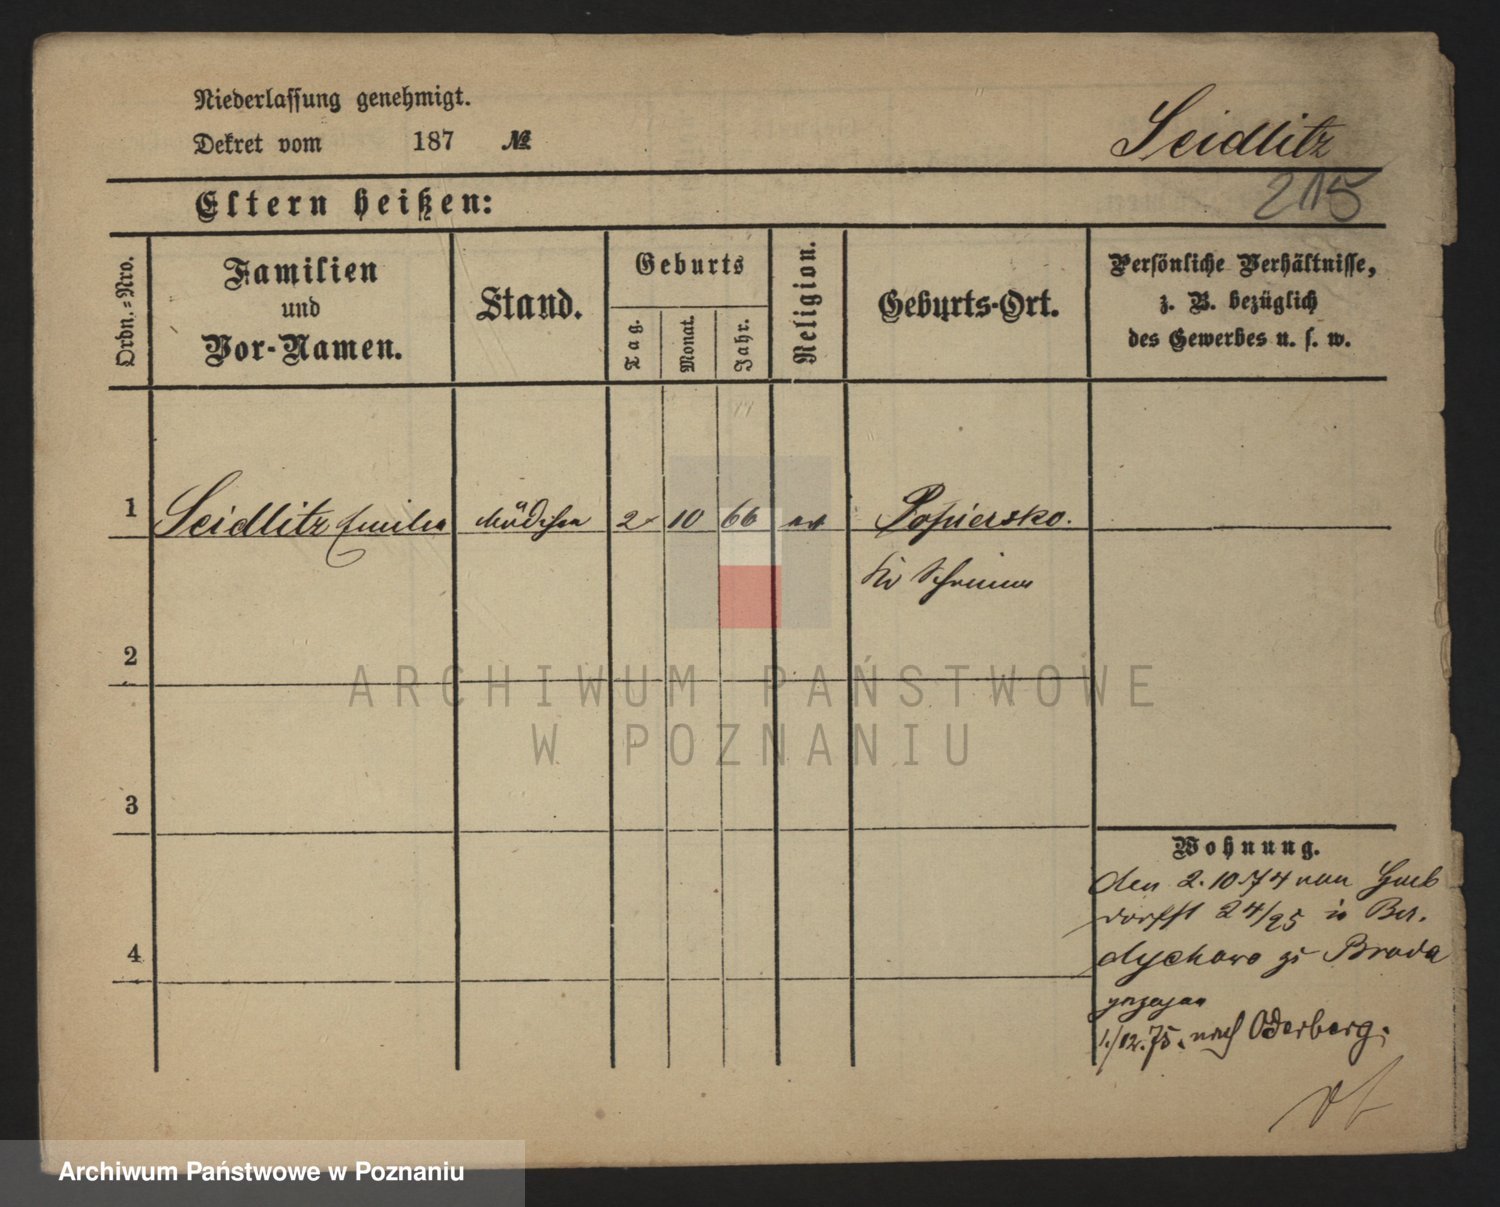 Niederlassung genehmigt.
Dekret vom 187 №
Seidlitz
215
Eltern heißen:
Ordn.-Nro.
Familien
und
Vor-Namen.
Stand.
Geburts
Tag.
Monat.
Jahr.
Religion.
Geburts-Ort.
Persönliche Verhältnisse,
z. B. bezüglich
des Gewerbes u. s. w.
1 Seidlitz Emilie Mädchen 2 10 66 ev Popiersko.
Kr Schrimm
2
ARCHIWUM PAŃSTWOWE
W POZNANIU
3
Wohnung.
den 2.10.74 von
24/25 in Ber-
dychowo zu Broda
gezogen
4
1./12.75. nach Oderberg.
Archiwum Państwowe w Poznaniu